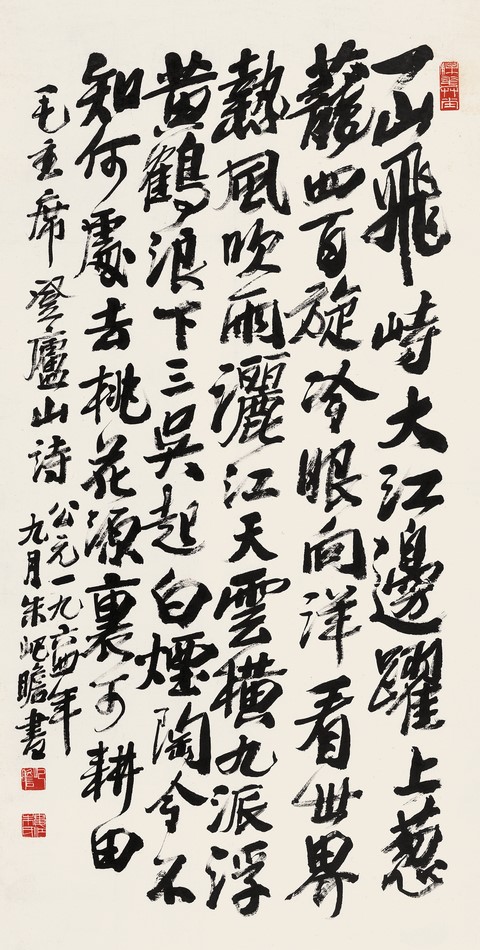 一山飛峙大江邊躍上葱
蘢四百旋冷眼向洋看世界
熱風吹雨灑江天雲橫九派浮
黄鶴浪下三吳起白煙陶令不
知何處去桃花源裏可耕田
毛主席登廬山诗
公元一九六四年
九月朱屺瞻書